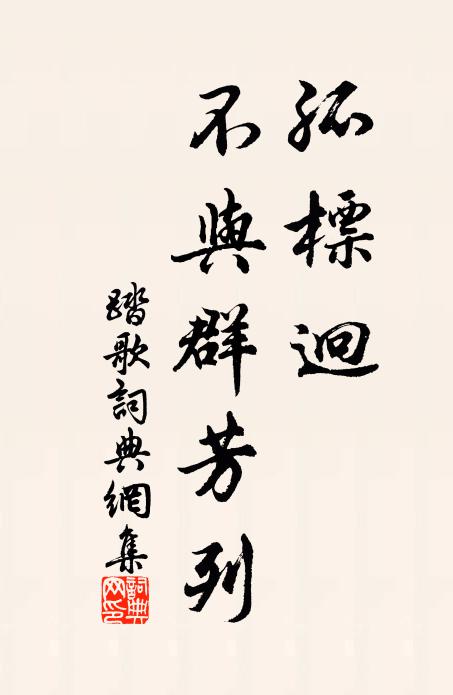 孤標迥
不與群芳列
踏歌詞典網集
詞典網印